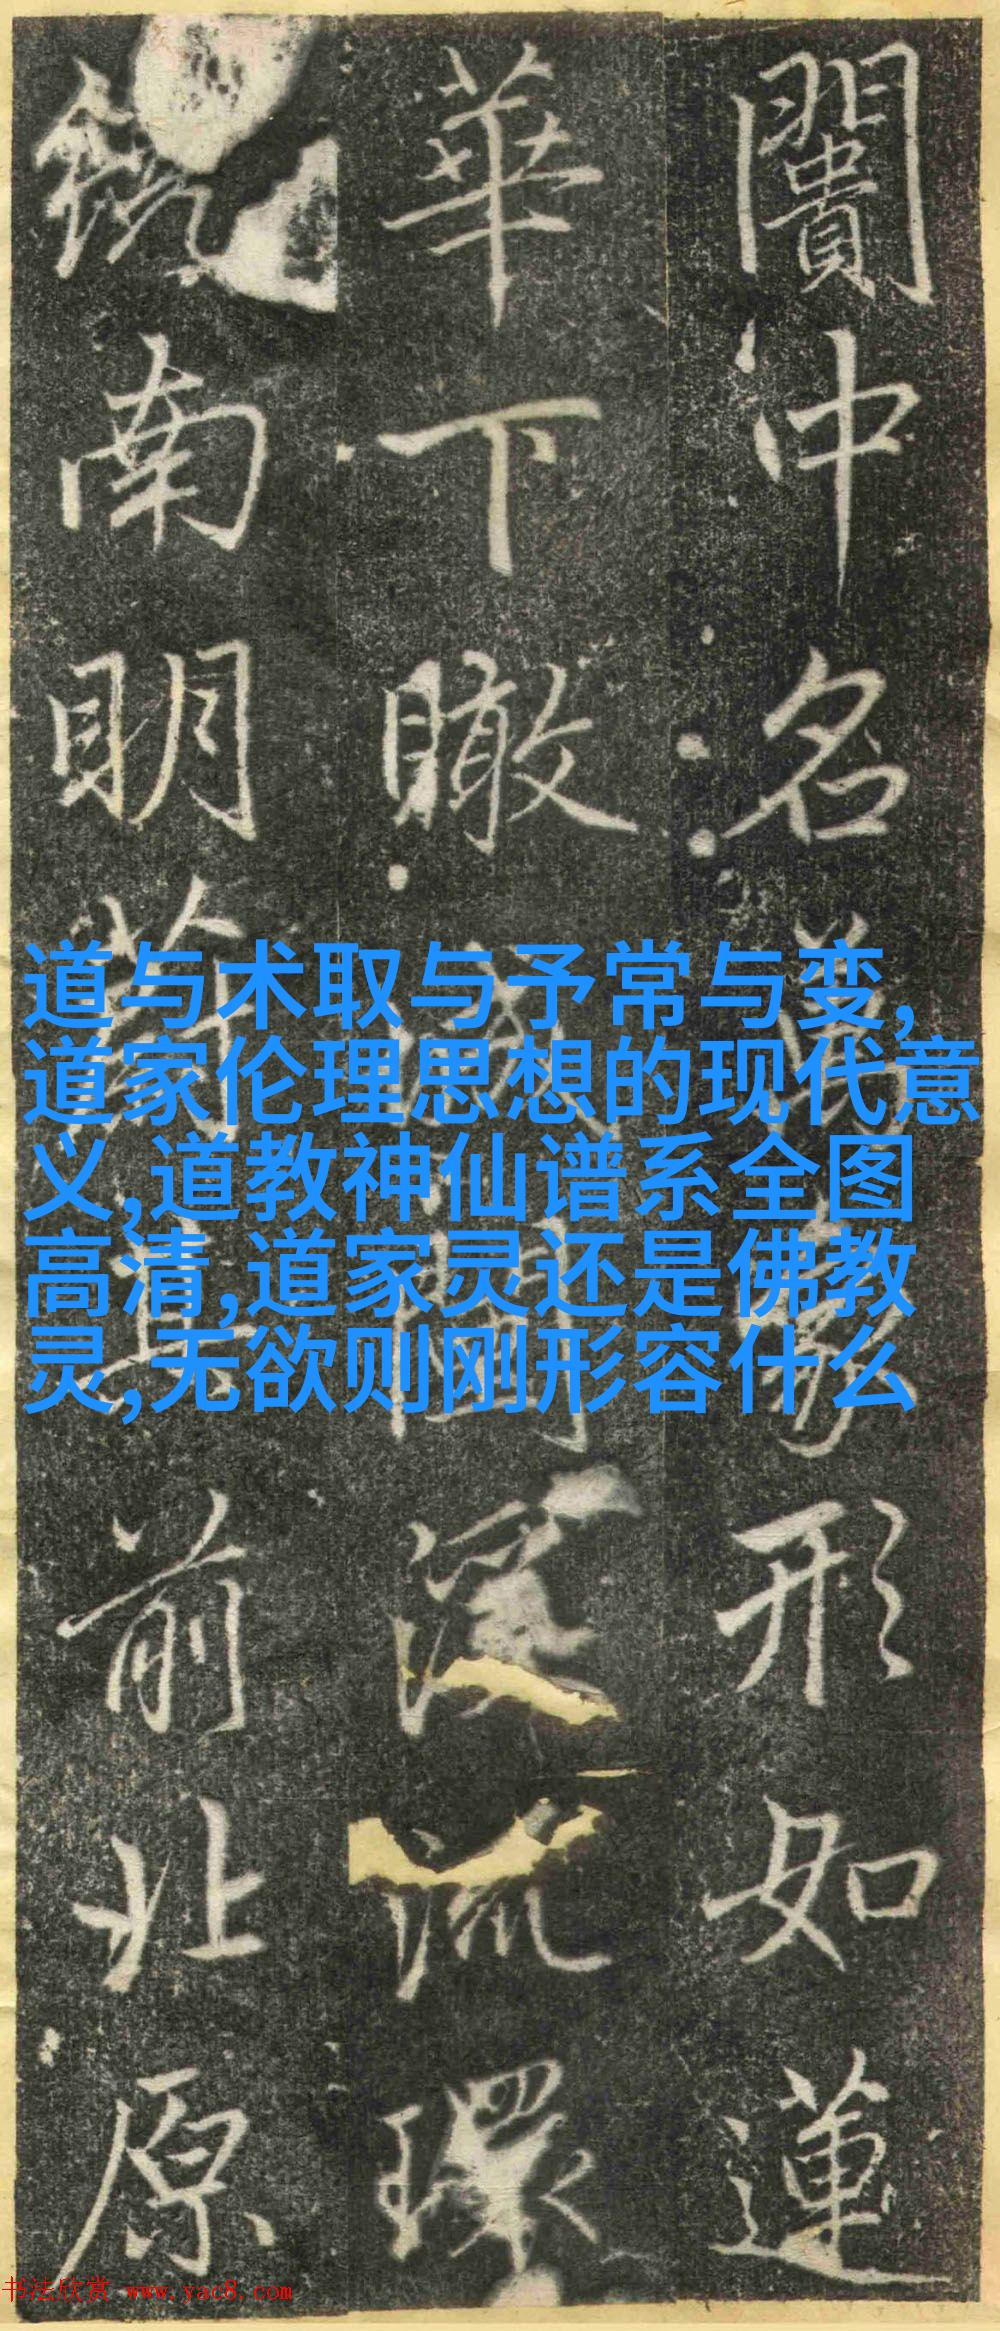 闠中名形如蓮
華下瞰城闉深流環
鏡南明前北原
道与术取与予常与变,
道家伦理思想的现代意
义,道教神仙谱系全图
高清,道家灵还是佛教
灵,无欲则刚形容什么
书法欣赏 www.yac8.com